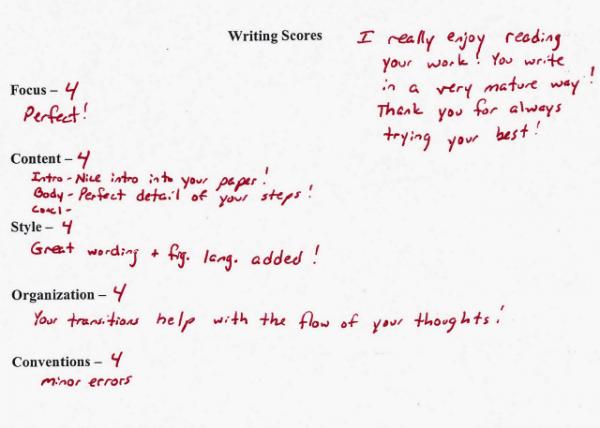 Writing Scores
I really enjoy reading
your work! You write
in a very mature way!
Thank you for always
trying your best!
Focus – 4
Perfect!
Content – 4
Intro - Nice intro into your paper!
Body - Perfect detail of your steps!
Concl -
Style – 4
Great wording + fig. lang. added!
Organization – 4
Your transitions help with the flow of your thoughts!
Conventions – 4
minor errors